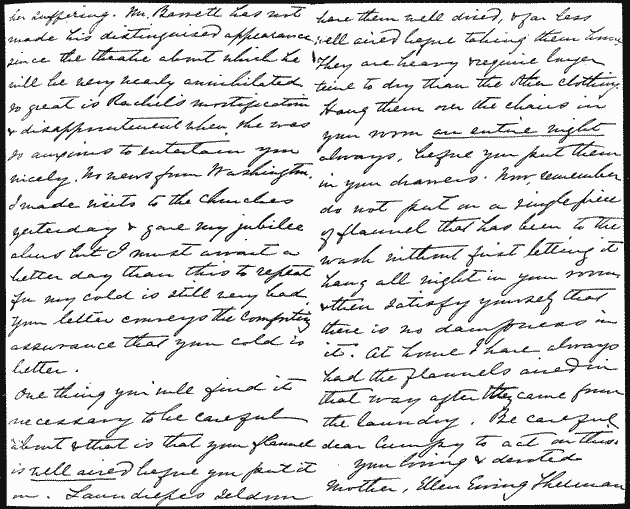 her suffering. Mr. Barrett has not
made his distinguised appearance
since the theatre about which he
will be very nearly annihilated
so great is Rachel's mortification
& disappointment when she was
so anxious to entertain you
nicely. No news from Washington.
I made visits to the churches
yesterday & gave my jubilee
alms but I must await a
better day than this to repeat
for my cold is still very bad
Your letter conveys the comforting
assurance that your cold is
better.
One thing you will find it
necessary to be careful
about & that is that your flannel
is well aired before you put it
on. Laundresses seldom
have them well dried, & far less
well aired before taking them home
They are heavy & require longer
time to dry than the other clothing.
Hang them over the chairs in
your room an entire night
always, before you put them
in your drawers. Now, remember
do not put on a single piece
of flannel that has been to the
wash without first letting it
hang all night in your room
& then satisfy yourself that
there is no dampness in
it. At home I have always
had the flannels aired in
that way after they came from
the laundry. Be careful
dear Cumpy to act on this.
your loving & devoted
Mother, Ellen Ewing Sherman